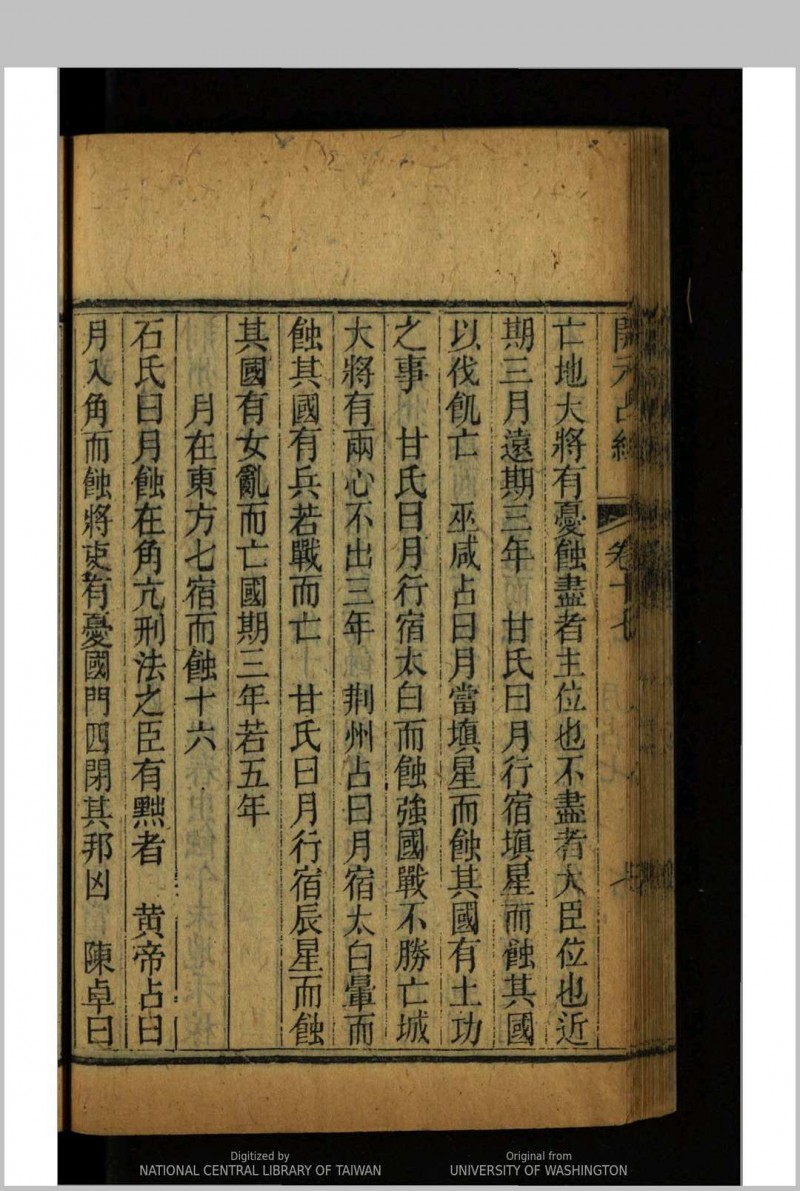 開元占經 卷十七
亡地大將有憂蝕盡者主位也不盡者大臣位也近
期三月遠期三年 甘氏曰月行宿塡星而蝕其國
以伐飢亡 巫咸占曰月當塡星而蝕其國有土功
之事 甘氏曰月行宿太白而蝕強國戰不勝亡城
大將有兩心不出三年 荆州占曰月宿太白暈而
蝕其國有兵若戰而亡 甘氏曰月行宿辰星而蝕
其國有女亂而亡國期三年若五年
月在東方七宿而蝕十六
石氏曰月蝕在角亢刑法之臣有黜者 黄帝占曰
月入角而蝕將吏有憂國門四閉其邦凶 陳卓曰
Digitized by
NATIONAL CENTRAL LIBRARY OF TAIWAN
Original from
UNIVERSITY OF WASHINGTON